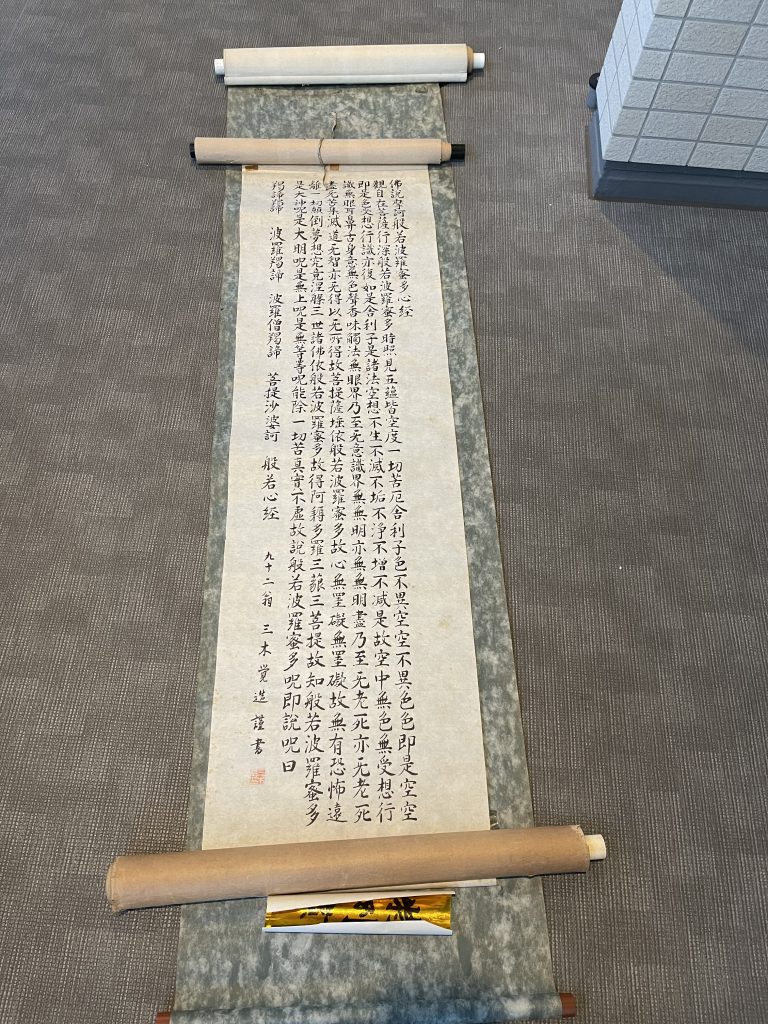 佛説摩訶般若波羅蜜多心経
觀自在菩薩行深般若波羅蜜多時照見五蘊皆空度一切苦厄舎利子色不異空空不異色色即是空空
即是色受想行識亦復如是舎利子是諸法空想不生不滅不垢不浄不増不減是故空中無色無受想行
識無眼耳鼻舌身意無色聲香味觸法無眼界乃至无意識界無無明亦無無明盡乃至无老死亦无老死
盡无苦集滅道无智亦无得以无所得故菩提薩埵依般若波羅蜜多故心無罣礙無罣礙故無有恐怖遠
離一切顛倒夢想究竟涅槃三世諸佛依般若波羅蜜多故得阿耨多羅三藐三菩提故知般若波羅蜜多
是大神呪是大明呪是無上呪是無等等呪能除一切苦真實不虚故説般若波羅蜜多呪即説呪曰
羯諦羯諦 波羅羯諦 波羅僧羯諦 菩提沙婆訶 般若心経
九十二翁 三木覚造 謹書